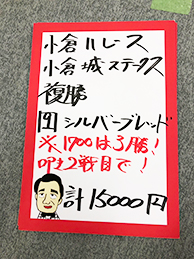 小倉11レース
小倉城ステークス
複勝
12 シルバーブレッド
※1700は3勝!
叩き2戦目で!
計15000円